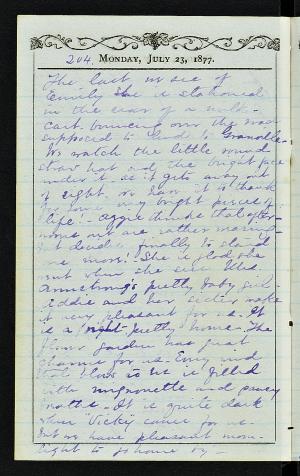 204. MONDAY, JULY 23, 1877.
The last we see of
Emily she is stationed
in the rear of a milk-
cart, bouncing over the road
supposed to lead to Granville.
We watch the little round
straw hat and the bright face
under it as it gets away out
of sight. We have it to thank
for very bright pieces of
life". Aggie thinks that after-
noons out are rather
but decides finally to stand
one more. She is glad she
out when she sees Mrs.
Armstrong's pretty baby girl.
Eddie and her sister make
it very pleasant for us. It
is a pretty home. The
flower garden has just
charms for us. Every
it is filled
with mignonette and pansy
It is quite dark
when Vicky comes for us.
But we have pleasant moon-
light to go home by —